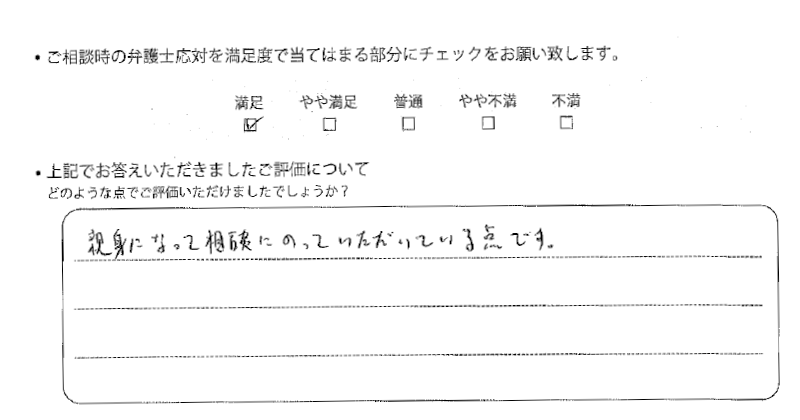 ・ご相談時の弁護士応対を満足度で当てはまる部分にチェックをお願い致します。
満足 やや満足 普通 やや不満 不満
☑ □ □ □ □
・上記でお答えいただきましたご評価について
どのような点でご評価いただけましたでしょうか？
親身になって相談にのっていただいている点です。